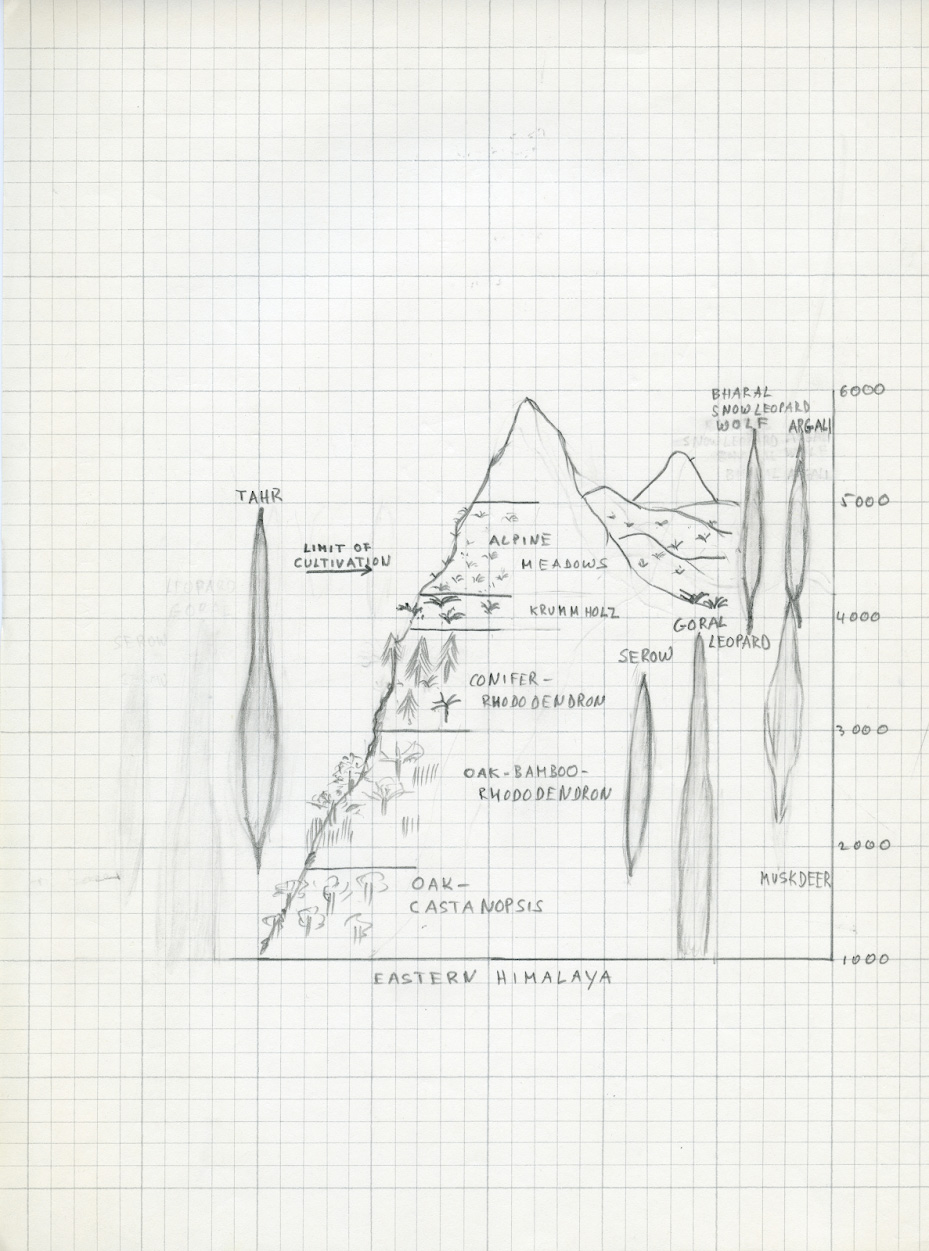 BHARAL
SNOW LEOPARD
WOLF
ARGALI
6000
TAHR
5000
LIMIT OF
CULTIVATION
ALPINE
MEADOWS
KRUMMHOLZ
4000
GORAL
LEOPARD
SEROW
CONIFER-
RHODODENDRON
3000
OAK-BAMBOO-
RHODODENDRON
2000
MUSKDEER
OAK-
CASTANOPSIS
1000
EASTERN HIMALAYA